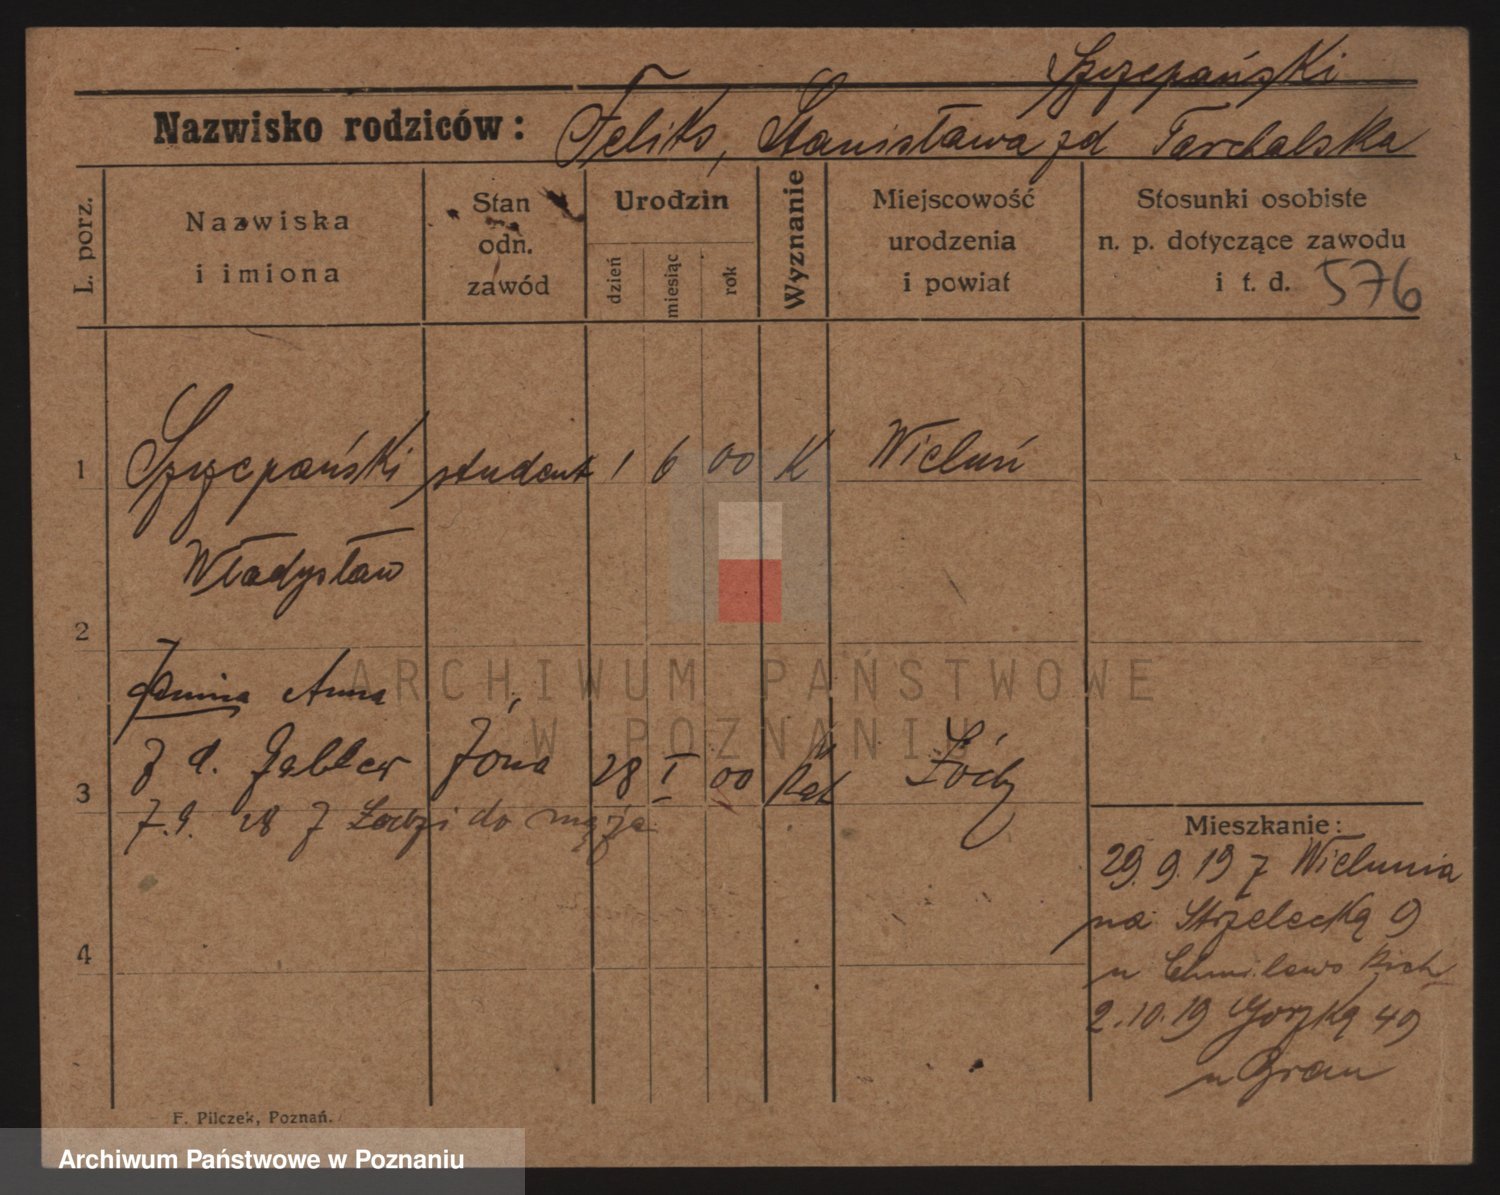 Szczepański
Nazwisko rodziców: Feliks, Stanisława zd Tarchalska
L. porz.
Nazwiska
i imiona
Stan
odn.
zawód
Urodzin
dzień
miesiąc
rok
Wyznanie
Miejscowość
urodzenia
i powiat
Stosunki osobiste
n. p. dotyczące zawodu
i t. d. 576
1 Szczepański student 1 6 00 K Wieluń
Władysław
2
Janina Anna
z d. żona 28 I 00 kat Łódź
3
7.9. 28 z Łodzi do męża
Mieszkanie:
29.9.19 z Wielunia
na Strzelecką 9
u
4
2.10.19 Górską 49
u
F. Pilczek, Poznań.
ARCHIWUM PAŃSTWOWE
W POZNANIU
Archiwum Państwowe w Poznaniu